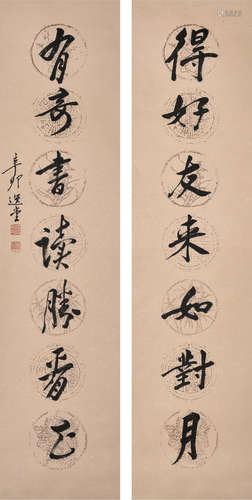 得好友来如對月
有奇書读勝看花
辛卯 选堂